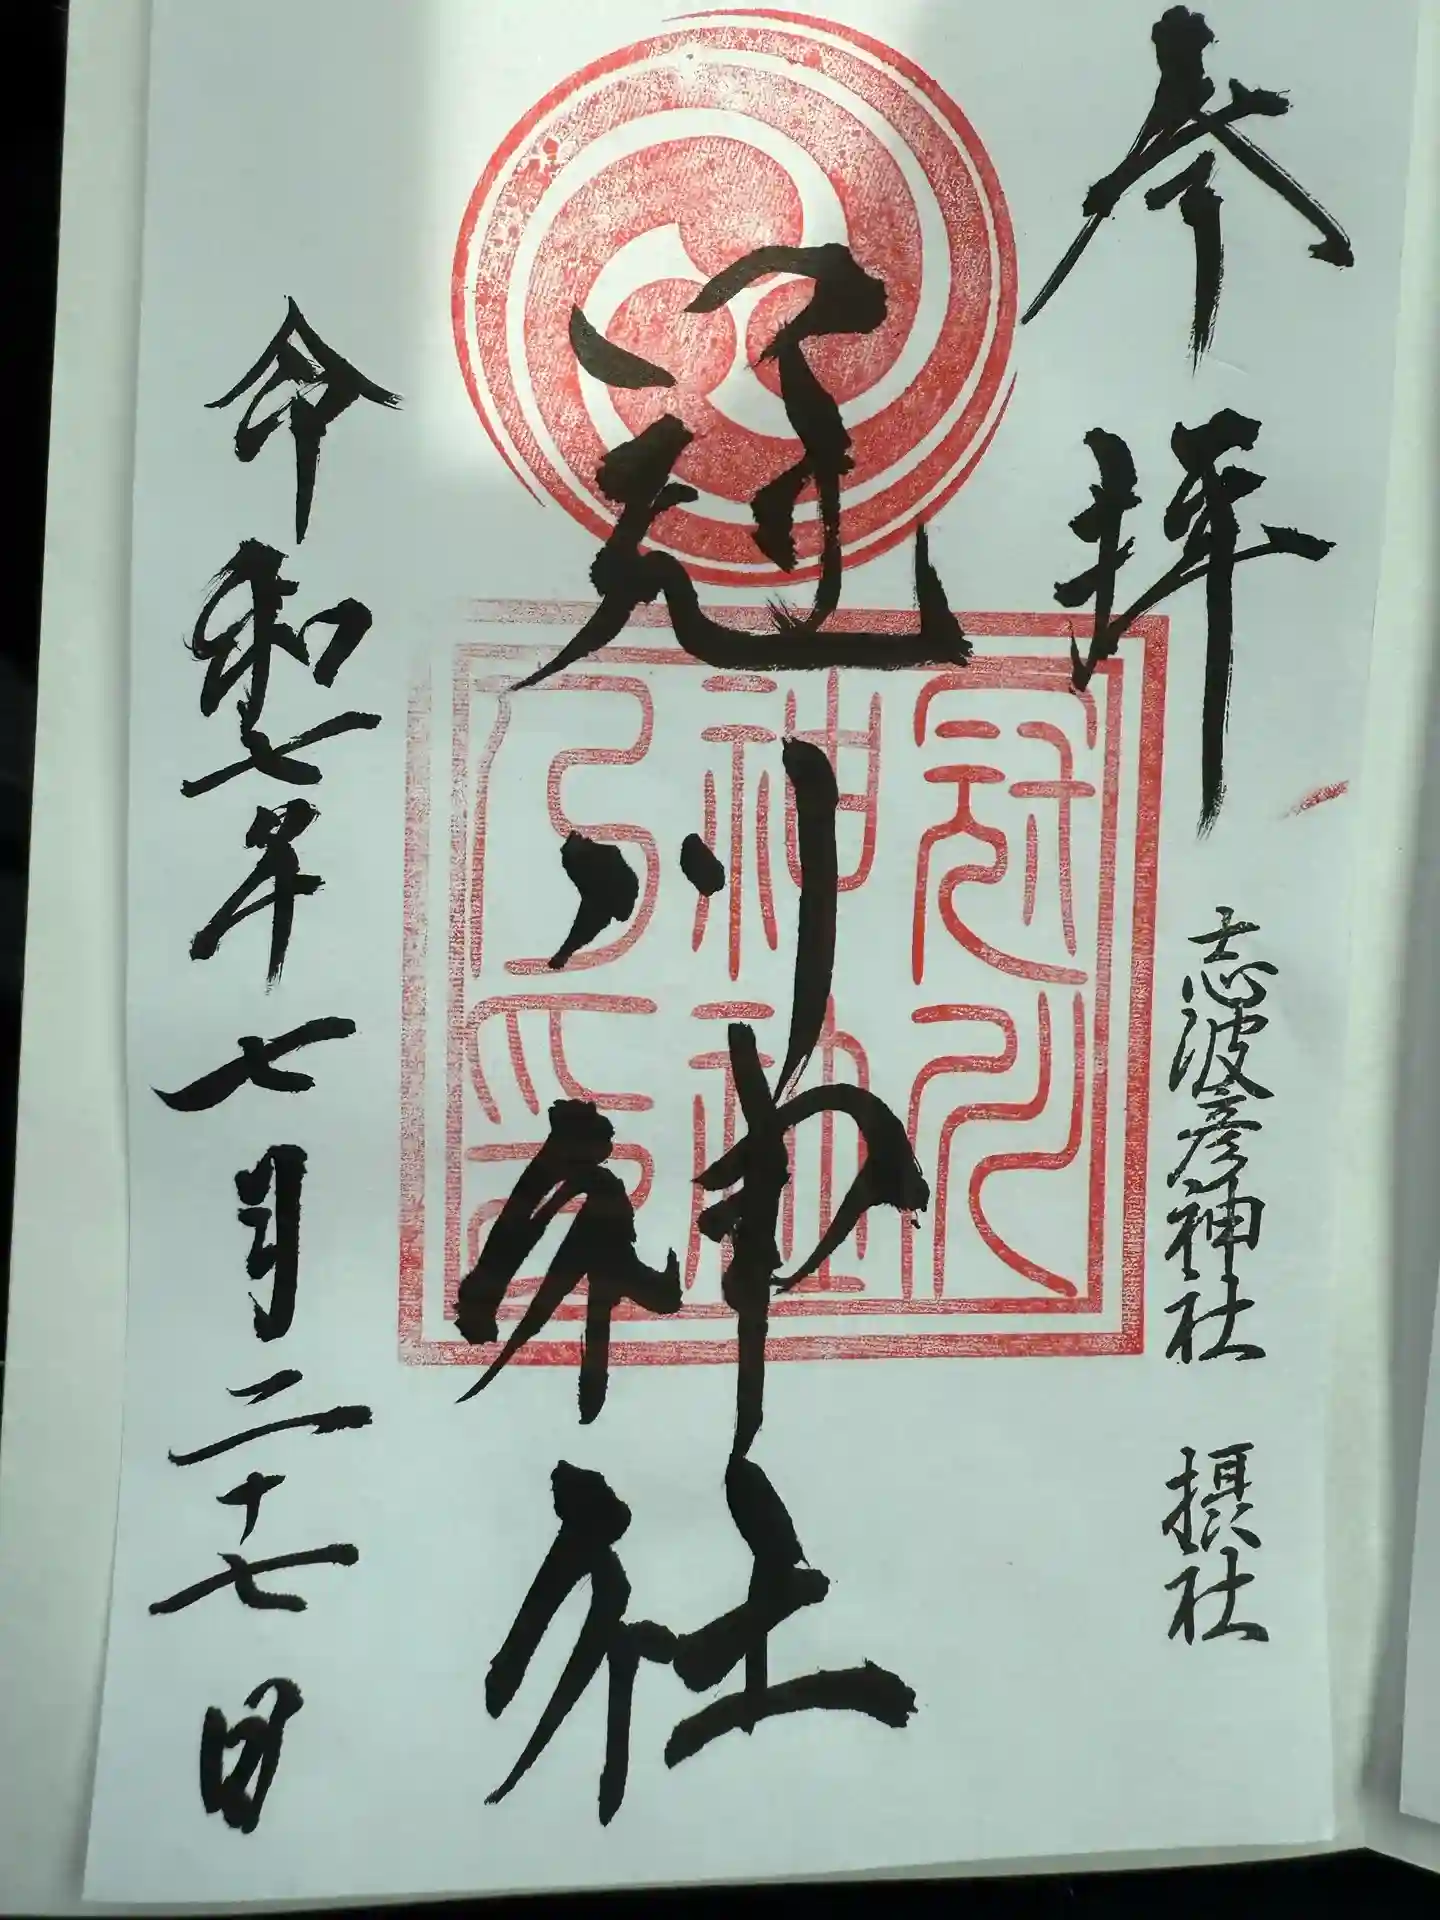 参拝
志波彦神社 摂社
冠川神社
冠川
神社
之印
令和七年七月二十七日